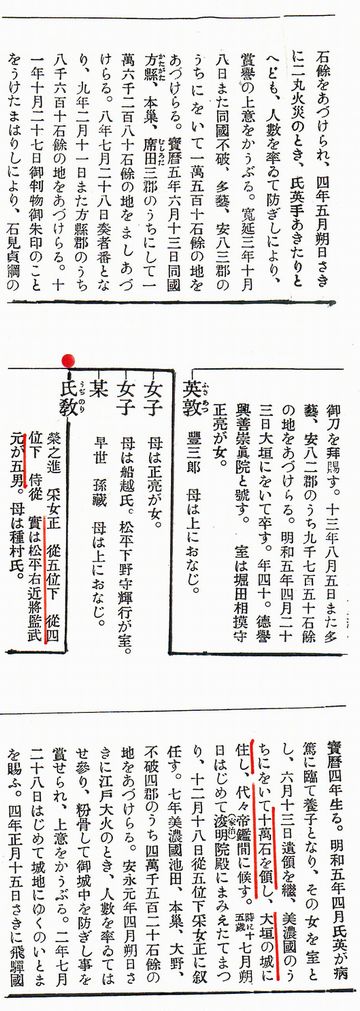 石餘をあづけられ、四年五月朔日さき
に二丸火災のとき、氏英手あきたりと
へども、人數を率ゐて防ぎしにより、
賞譽の上意をかうぶる。寬延三年十月
八日また同國不破、多藝、安八三郡の
うちにをいて一萬五百十石餘の地を
あづけらる。寶曆五年六月十三日同國
方縣、本巢、席田三郡のうちにして一
萬六千二百八十石餘の地をましあづ
けらる。八年七月二十八日奏者番とな
り、九年二月十一日また方縣郡のうち
八千六百十石餘の地をあづけらる。十
一年十月二十七日御判物御朱印のこと
をうけたまはりしにより、石見貞綱の
御刀を拜賜す。十三年八月五日また多
藝、安八二郡のうち九千七百五十石餘
の地をあづけらる。明和五年四月二十
三日大垣にをいて卒す。年四十。德譽
興善崇眞院と號す。 室は堀田相摸守
正亮が女。
英敦 ふさあつ
豐三郎 母は上におなじ。
女子
母は正亮が女。
女子
母は船越氏。松平下野守輝行が室。
某
早世 孫藏 母は上におなじ。
氏敎 うぢのり
榮之進 采女正 從五位下 從四
位下 侍從 實は松平右近將監武
元が五男。母は種村氏。
寶曆四年生る。明和五年四月氏英が病
篤に臨て養子となり、その女を室と
し、六月十三日遺領を繼、美濃國のう
ちにをいて十萬石を領し、大垣の城に
住し、代々帝鑑間に候す。時に十五歲七月朔
日はじめて浚明院殿(家治)にまみえたてまつ
り、十二月十八日從五位下采女正に叙
任す。七年美濃國池田、本巢、大野、
不破四郡のうち四萬千五百二十石餘の
地をあづけらる。安永元年四月朔日さ
きに江戶大火のとき、人數を率ゐては
せ參り、粉骨して御城中を防ぎし事を
賞せられ、上意をかうぶる。二年七月
二十八日はじめて城地にゆくのいとま
を賜ふ。四年正月十五日さきに飛驒國